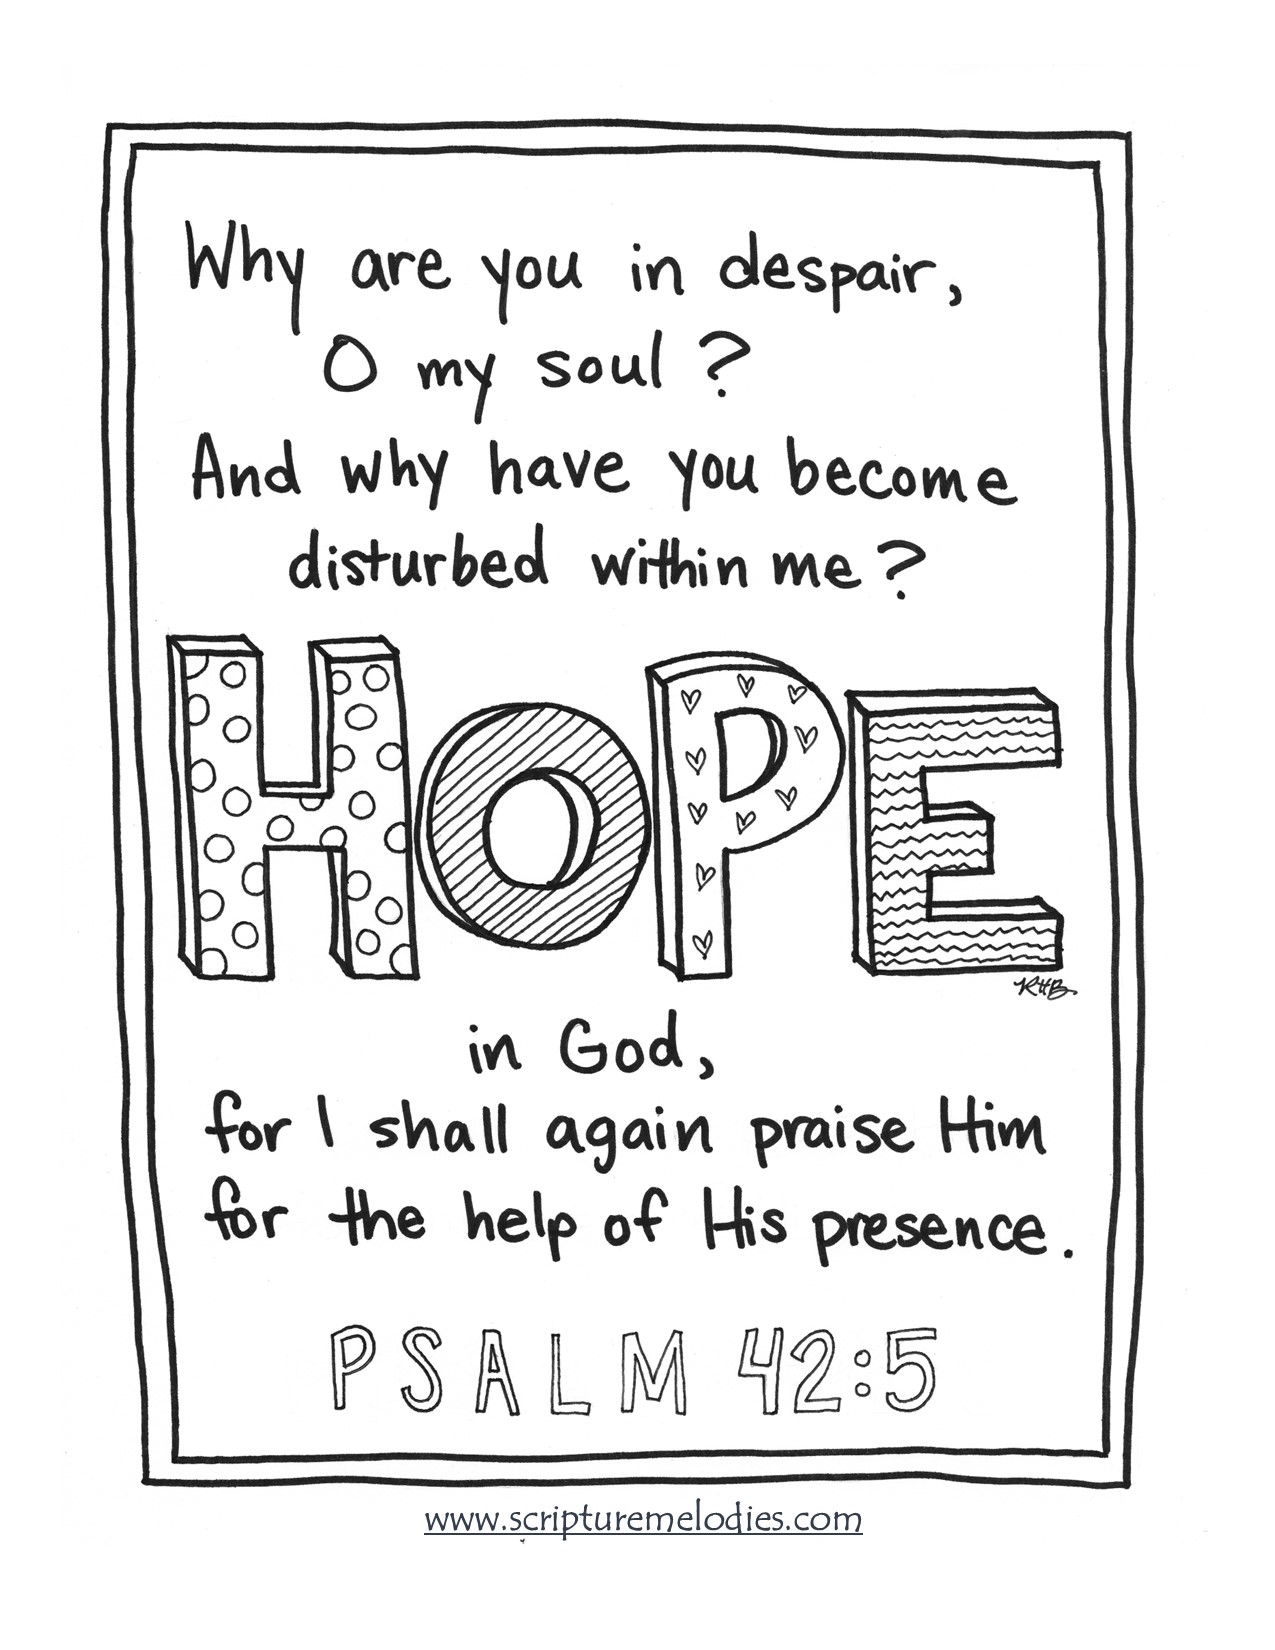 Why are you in despair,
O my soul?
And why have you become
disturbed within me?
HOPE
RHB
in God,
for I shall again praise Him
for the help of His presence.
PSALM 42:5
www.scripturemelodies.com